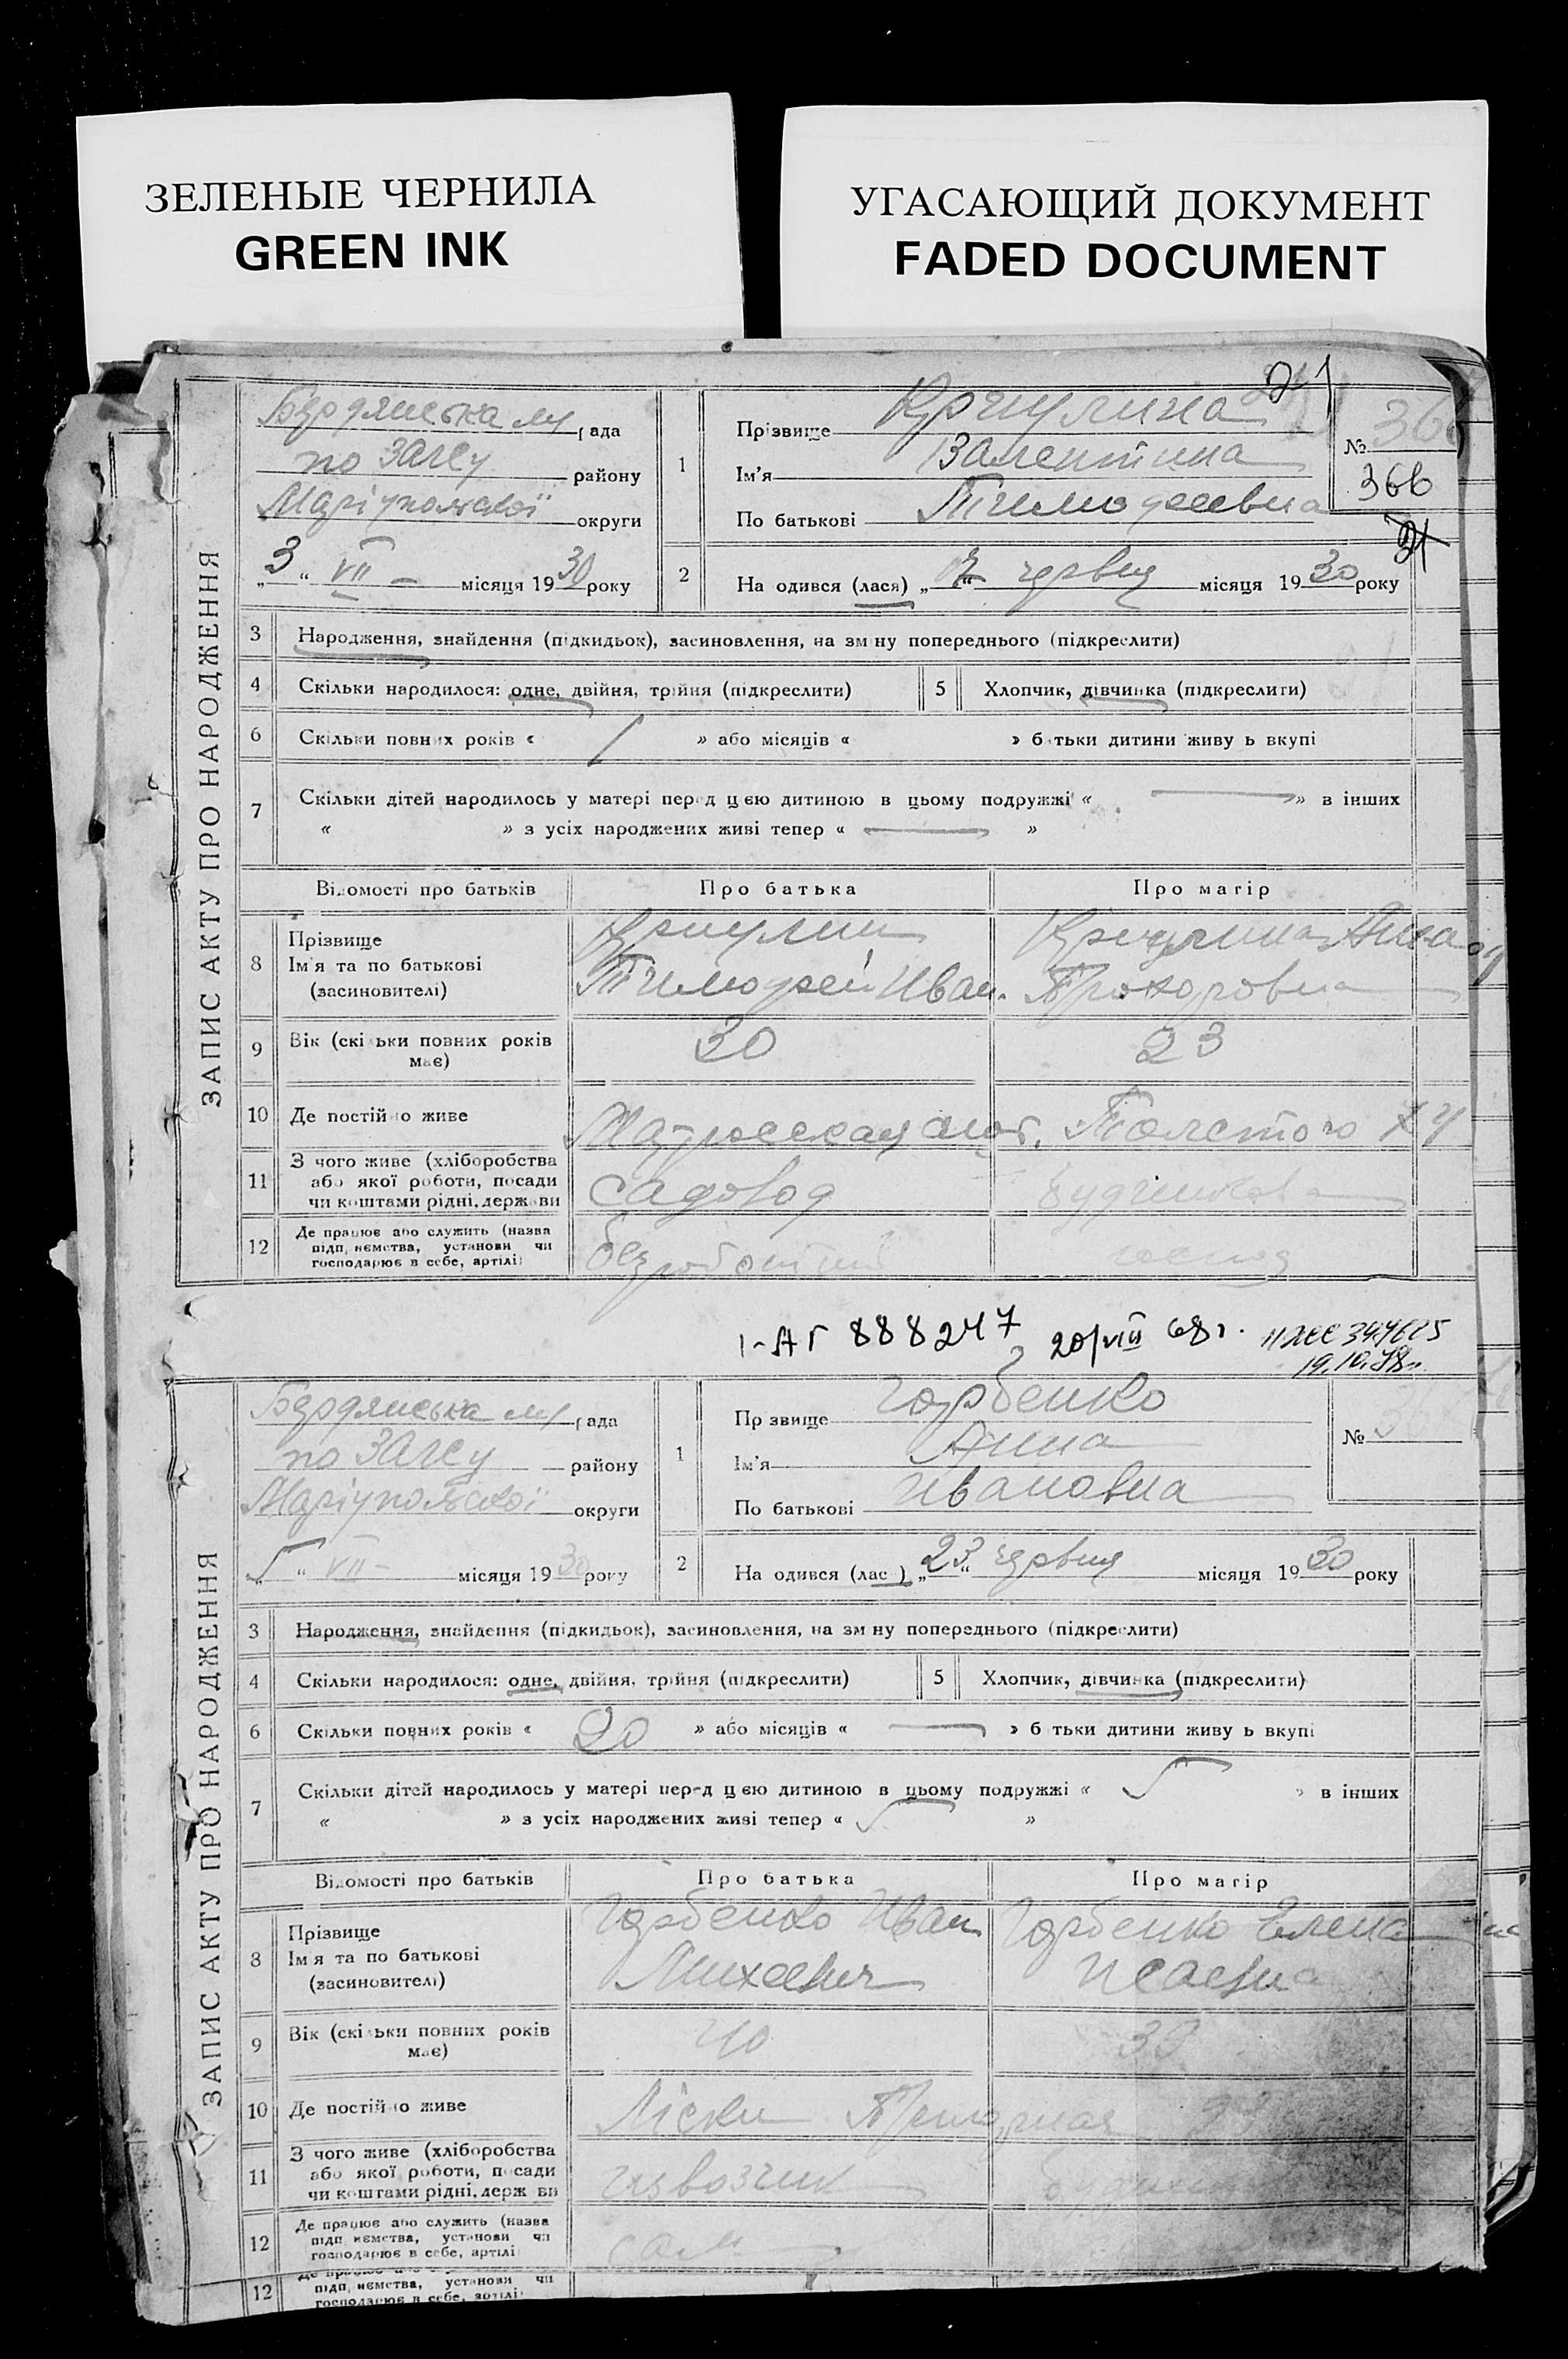 ЗЕЛЕНЫЕ ЧЕРНИЛА
GREEN INK
УГАСАЮЩИЙ ДОКУМЕНТ
FADED DOCUMENT
ЗАПИС АКТУ ПРО НАРОДЖЕННЯ
Бердянська м/рада
по ЗАГСу району
Маріупольської округи
„3“ VII – місяця 1930 року
1
Прізвище
Ім'я Валентина
По батькові Тимофеевна
№ 366
366
2
На одився (лася) „ “ червня місяця 1930 року
3 Народження, знайдення (підкидьок), засиновлення, на зм ну попереднього (підкреслити)
4 Скільки народилося: одне, двійня, трійня (підкреслити) 5 Хлопчик, дівчинка (підкреслити)
6 Скільки повних років « / » або місяців « » б тьки дитини живу ь вкупі
7 Скільки дітей народилось у матері перед цією дитиною в цьому подружжі « — » в інших
« » з усіх народжених живі тепер « — »
Відомості про батьків Про батька Про матір
8 Прізвище
Ім'я та по батькові Тимофей Иван. Прохоровна
(засиновителі)
9 Вік (скільки повних років має) 30 23
10 Де постійно живе Матросская слоб. Толстого 74
11 З чого живе (хліборобства або якої роботи, посади чи коштами рідні, держави садовод
12 Де працює або служить (назва підприємства, установи чи господарює в себе, артілі) безроботний
1-АГ 888247 20/VIII 68г.
19.10.78г.
ЗАПИС АКТУ ПРО НАРОДЖЕННЯ
Бердянська м/рада
по ЗАГСу району
Маріупольської округи
„5“ VII – місяця 1930 року
1
Пр звище Горбенко
Ім'я Анна
По батькові Ивановна
№
2
На одився (лас ) „23“ червня місяця 1930 року
3 Народження, знайдення (підкидьок), засиновлення, на зм ну попереднього (підкреслити)
4 Скільки народилося: одне, двійня, трійня (підкреслити) 5 Хлопчик, дівчинка (підкреслити)
6 Скільки повних років « 20 » або місяців « — » б тьки дитини живу ь вкупі
7 Скільки дітей народилось у матері перед цією дитиною в цьому подружжі « 5 » в інших
« » з усіх народжених живі тепер « 5 »
Відомості про батьків Про батька Про матір
8 Прізвище Горбенко Иван Горбенко Елена
Ім'я та по батькові Михеевич Исаевна
(засиновителі)
9 Вік (скільки повних років має) 40
10 Де постійно живе Ліски
11 З чого живе (хліборобства або якої роботи, посади чи коштами рідні, держ ви извозчик
12 Де працює або служить (назва підп иємства, установи чи господарює в себе, артілі сам
12 підп иємства, установи чи
господарює в себе, артілі